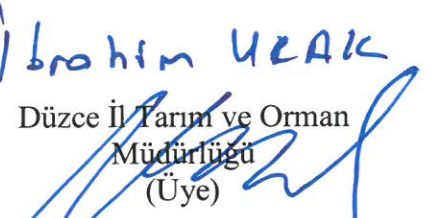 İbrahim UÇAK
Düzce İl Tarım ve Orman
Müdürlüğü
(Üye)